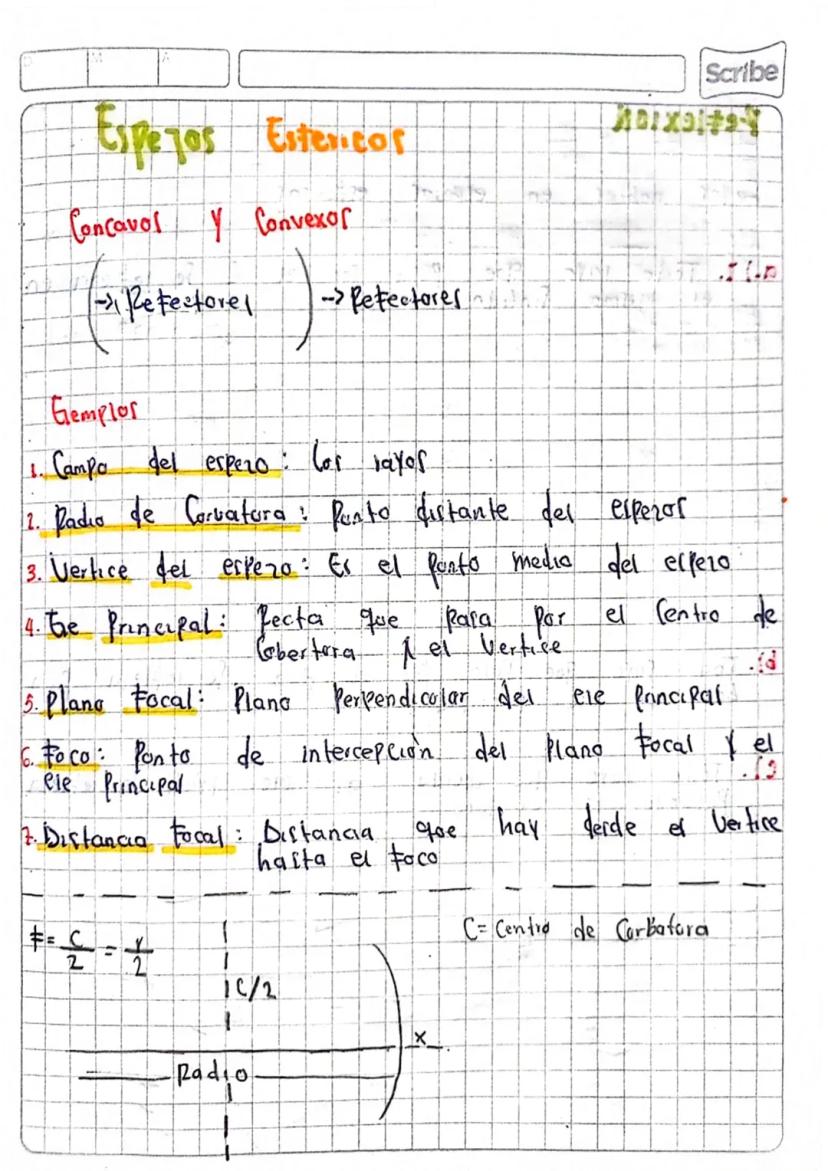 D M A
Scribe
Espejos Esfericos
Concavos y Convexos
→ Refectores → Refectores
Ejemplos
1. Campo del espejo: Los rayos
2. Radio de Corvatora: Ponto distante del espejos
3. Vertice del espejo: Es el ponto medio del espejo
4. Eje Principal: Recta qoe pasa por el Centro de
Cobertora y el Vertise
5. Plano Focal: Plano Perpendicolar del eje Principal
6. Foco: Ponto de intercepción del Plano Focal y el
eje Principal
7. Distancia Focal: Distancia qoe hay desde el Vertice
hasta el Foco
F = C/2 = r/2
C = Centro de Corbatora
C/2
x
Radio